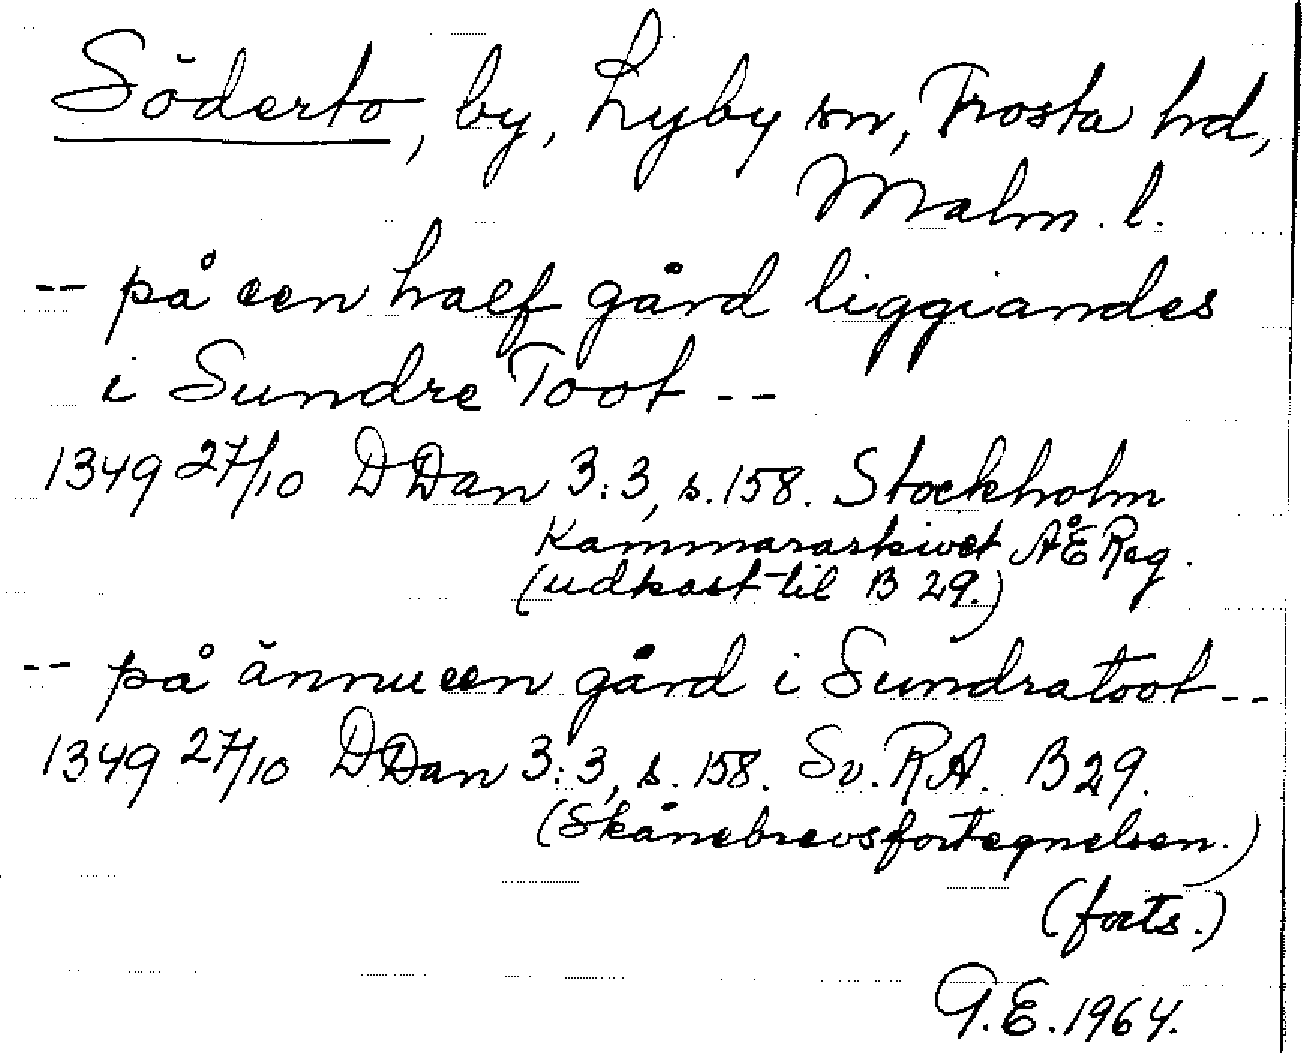 Söderto, by, Lyby sn, Frosta hd,
Malm. l.
-- på een half gård liggiandes
i Sundre Toot --
1349 27/10 DDan 3:3, s. 158. Stockholm
Kammararkivet ÅÆ Reg.
(udkast til B 29.)
-- på ännu een gård i Sundratoot --
1349 27/10 DDan 3:3, s. 158. Sv. RA. B 29.
(Skånebrevsfortegnelsen.)
(forts.)
G.E. 1964.